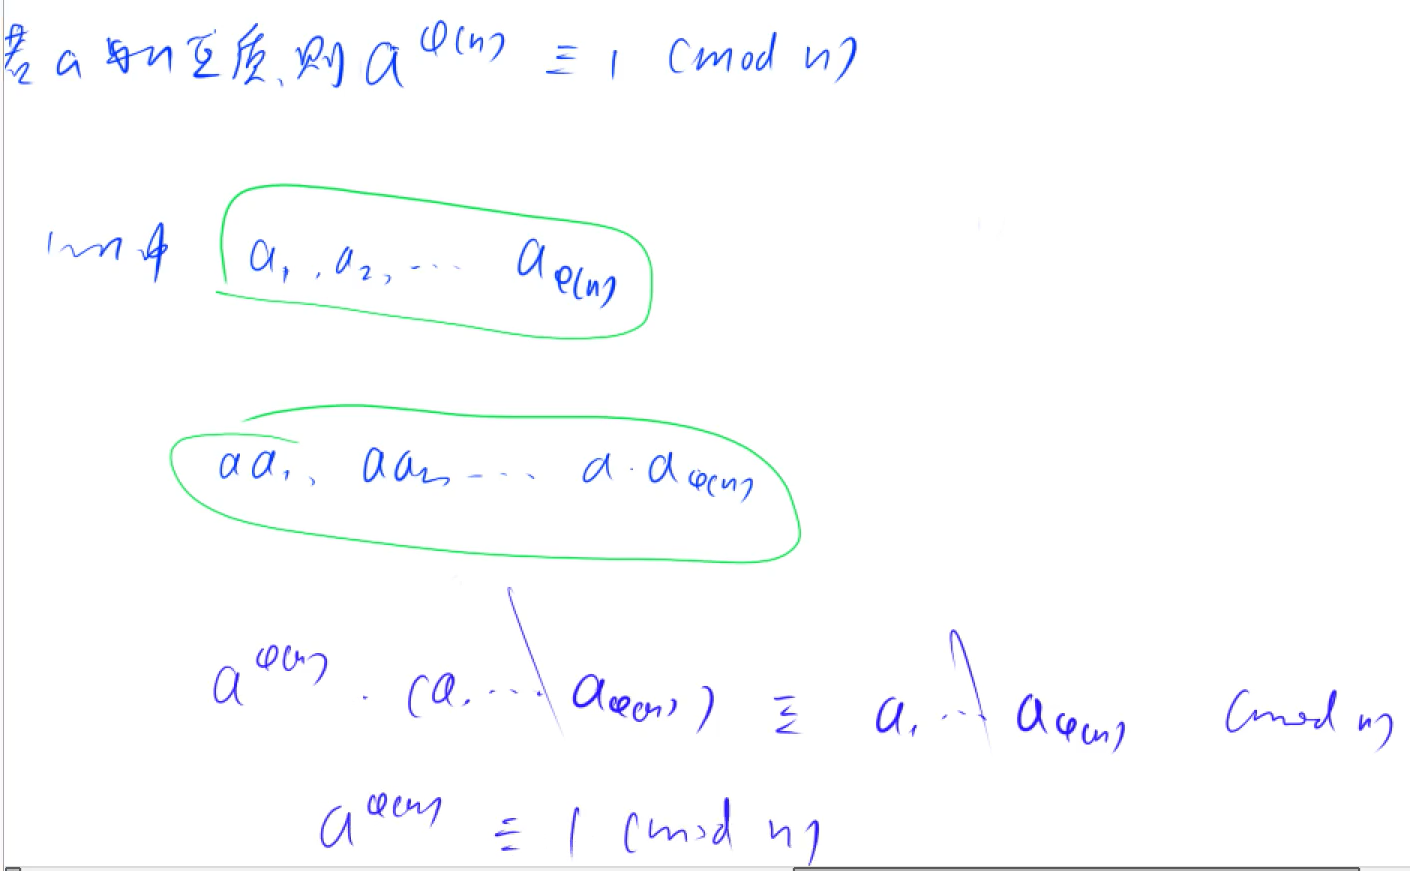 若a与n互质,则 a^φ(n) ≡ 1 (mod n)
1~n中 a₁, a₂, ... a_φ(n)
aa₁, aa₂, ... a·a_φ(n)
a^φ(n) · (a₁ ... a_φ(n)) ≡ a₁ ... a_φ(n) (mod n)
a^φ(n) ≡ 1 (mod n)